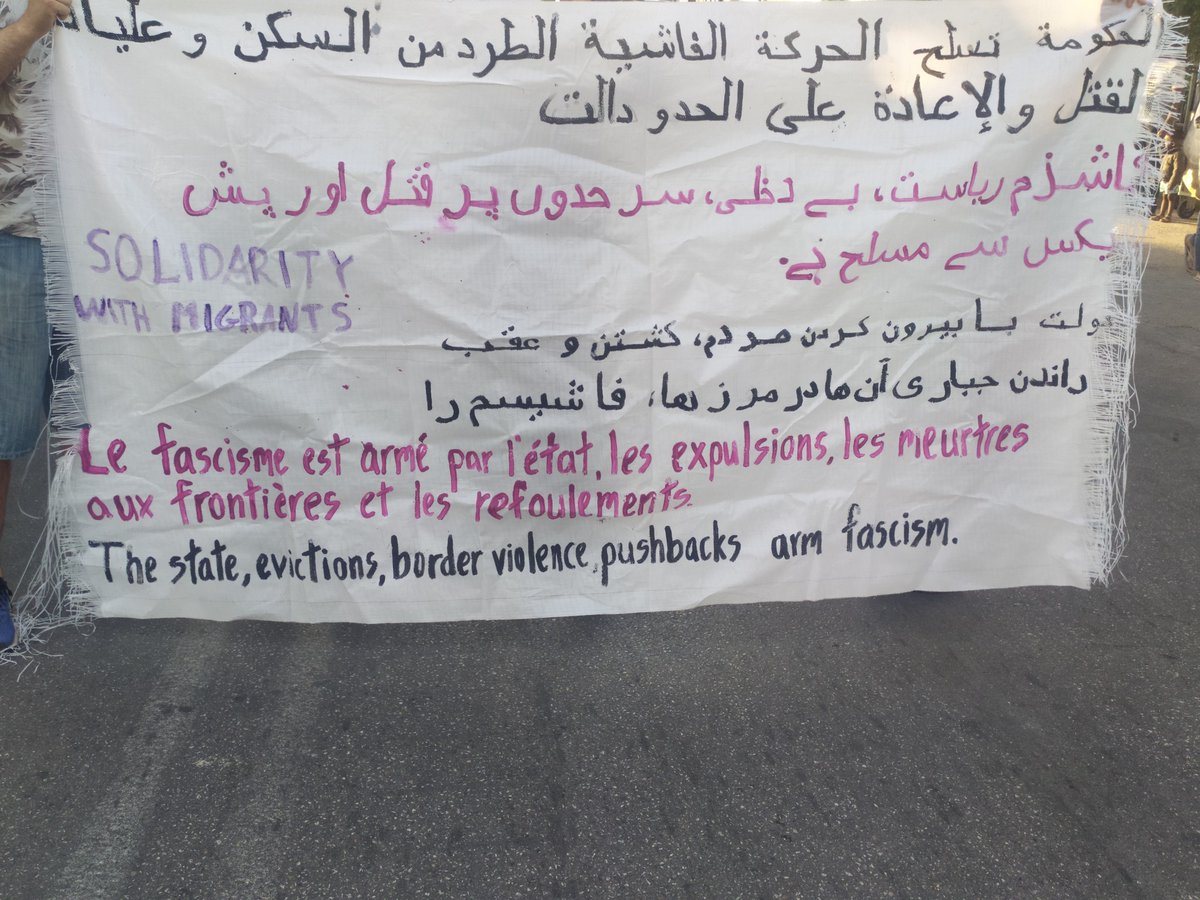 لحكومة تسلح الحركة الفاشية الطرد من السكن و عليات
لقتل والإعادة على الحدو دالت
فاشزم ریاست، بے دخلی، سر حدوں پر قتل اور پش
بکس سے مسلح ہے۔
SOLIDARITY
WITH MIGRANTS
ولت با بیرون کردن مردم، کشتن و عقب
راندن جباری آن ها در مرز ها، فاشیسم را
Le fascisme est armé par l'état, les expulsions, les meurtres
aux frontières et les refoulements.
The state, evictions, border violence, pushbacks arm fascism.